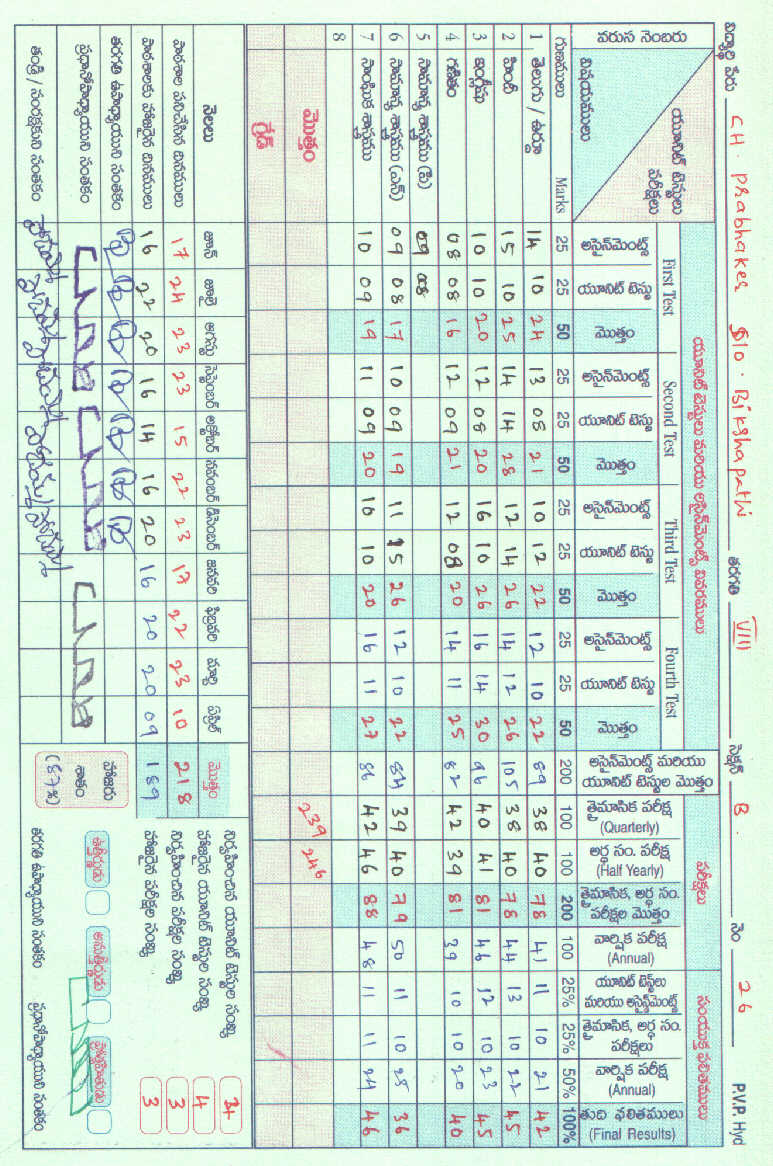 విద్యార్థి పేరు CH. Prabhaker S/o. Bikshapathi తరగతి VIII సెక్షన్ B నెం 26 P.V.P. Hyd
వరుస నెంబరు యూనిట్ టెస్టులు పరీక్షలు యూనిట్ టెస్టులు మరియు అసైన్‌మెంట్స్ వివరములు పరీక్షలు సంయుక్త ఫలితములు
విషయములు First Test Second Test Third Test Fourth Test
అసైన్‌మెంట్స్ యూనిట్ టెస్టు మొత్తం అసైన్‌మెంట్స్ యూనిట్ టెస్టు మొత్తం అసైన్‌మెంట్స్ యూనిట్ టెస్టు మొత్తం అసైన్‌మెంట్స్ యూనిట్ టెస్టు మొత్తం అసైన్‌మెంట్స్ మరియు యూనిట్ టెస్టుల మొత్తం త్రైమాసిక పరీక్ష (Quarterly) అర్ధ సం. పరీక్ష (Half Yearly) త్రైమాసిక, అర్ధ సం. పరీక్షల మొత్తం వార్షిక పరీక్ష (Annual) యూనిట్ టెస్ట్‌లు మరియు అసైన్‌మెంట్స్ త్రైమాసిక, అర్ధ సం. పరీక్షలు వార్షిక పరీక్ష (Annual) తుది ఫలితములు (Final Results)
గుణములు Marks 25 25 50 25 25 50 25 25 50 25 25 50 200 100 100 200 100 25% 25% 50% 100%
1 తెలుగు / ఉర్దూ 14 10 24 13 08 21 10 12 22 12 10 22 89 38 40 78 41 11 10 21 42
2 హిందీ 15 10 25 14 14 28 12 14 26 14 12 26 105 38 40 78 44 13 10 22 45
3 ఇంగ్లీషు 10 10 20 12 08 20 16 10 26 16 14 30 96 40 41 81 46 12 10 23 45
4 గణితం 08 08 16 12 09 21 12 08 20 14 11 25 82 42 39 81 39 10 10 20 40
5 సామాన్య శాస్త్రము (పి) 09 08
6 సామాన్య శాస్త్రము (ఎన్) 09 08 17 10 09 19 11 15 26 12 10 22 84 39 40 79 50 11 10 25 36
7 సాంఘిక శాస్త్రము 10 09 19 11 09 20 10 10 20 16 11 27 86 42 46 88 48 11 11 24 46
8
మొత్తం 239 246
గ్రేడ్
నెలలు జూన్ జూలై ఆగస్టు సెప్టెంబర్ అక్టోబర్ నవంబర్ డిసెంబర్ జనవరి ఫిబ్రవరి మార్చి ఏప్రిల్ మొత్తం
పాఠశాల పనిచేసిన దినములు 17 24 23 23 15 22 23 17 22 23 10 218
పాఠశాలకు హాజరైన దినములు 16 22 20 16 14 16 20 16 20 20 09 189
తరగతి ఉపాధ్యాయుని సంతకం
ప్రధానోపాధ్యాయుని సంతకం హాజరు శాతం (87%)
తండ్రి / సంరక్షకుని సంతకం
నిర్వహించిన యూనిట్ టెస్టుల సంఖ్య 34
హాజరైన యూనిట్ టెస్టుల సంఖ్య 4
నిర్వహించిన పరీక్షల సంఖ్య 3
హాజరైన పరీక్షల సంఖ్య 3
ఉత్తీర్ణుడు అనుత్తీర్ణుడు
తరగతి ఉపాధ్యాయుని సంతకం ప్రధానోపాధ్యాయుని సంతకం